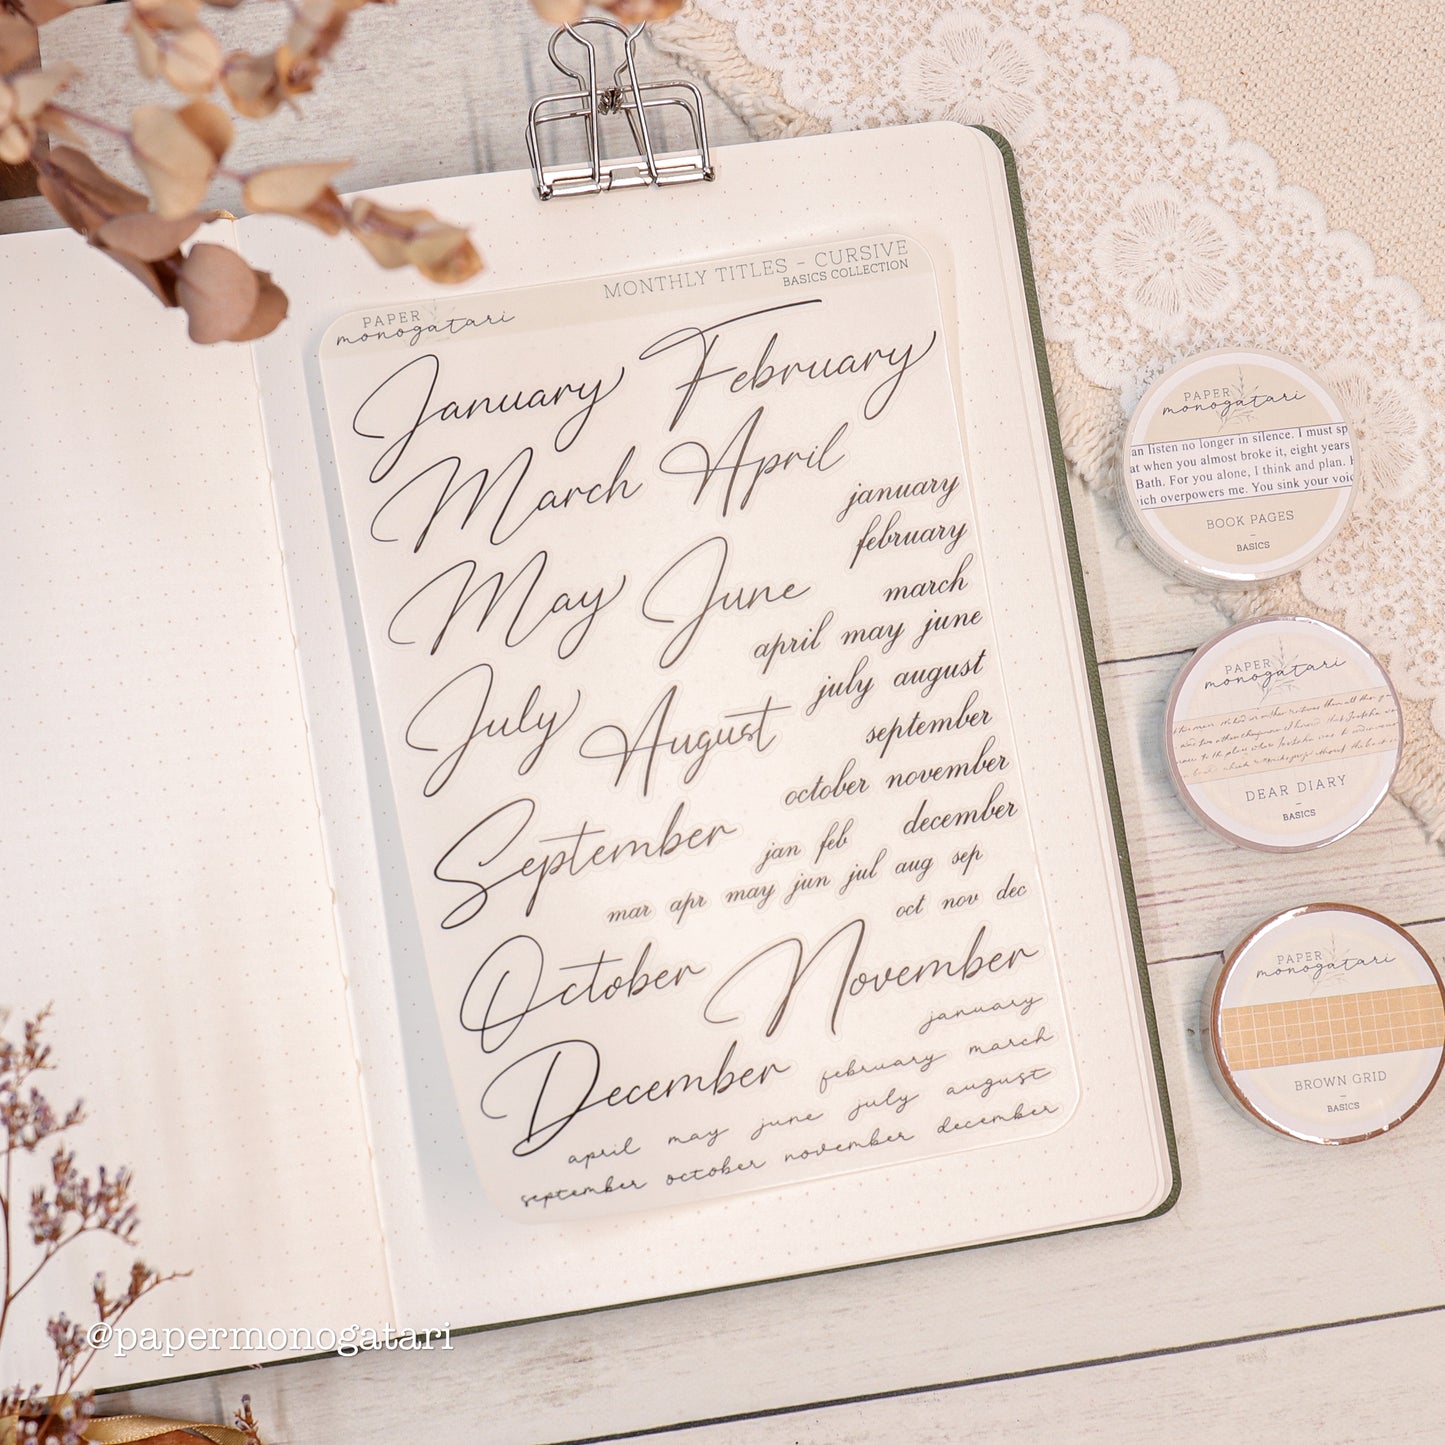 PAPER
monogatari
MONTHLY TITLES - CURSIVE
BASICS COLLECTION
January February
March April
january
february
May June
march
april may june
july august
July August
september
october november
September
jan feb december
mar apr may jun jul aug sep
oct nov dec
October November
january
December
february march
april may june july august
september october november december
PAPER
monogatari
an listen no longer in silence. I must sp
at when you almost broke it, eight years
Bath. For you alone, I think and plan.
ich overpowers me. You sink your voic
BOOK PAGES
BASICS
PAPER
monogatari
DEAR DIARY
-
BASICS
PAPER
monogatari
BROWN GRID
-
BASICS
@papermonogatari